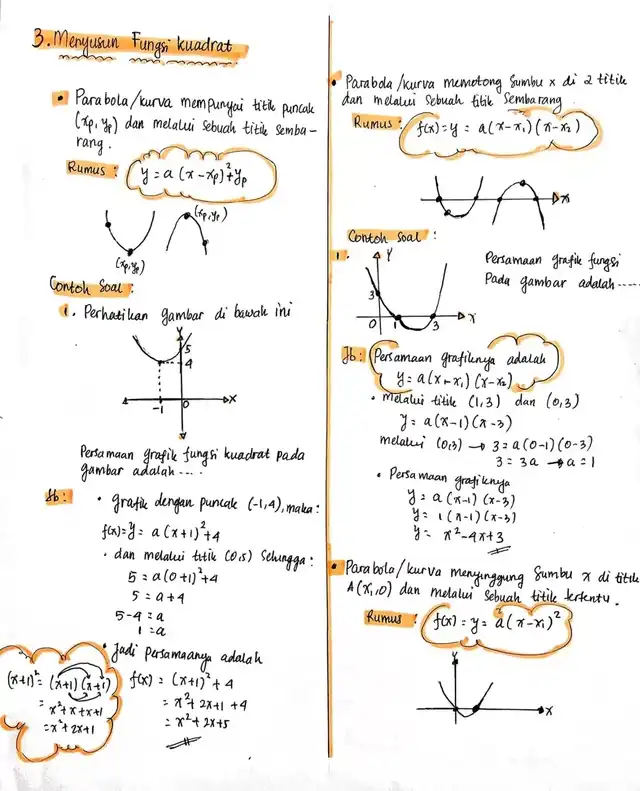 3. Menyusun Fungsi Kuadrat
• Parabola/kurva mempunyai titik puncak
(xp, yp) dan melalui sebuah titik semba-
rang.
Rumus: y = a(x - xp)² + yp
(xp, yp)
(xp, yp)
Contoh Soal:
1. Perhatikan gambar di bawah ini
Y
5
4
-1
0
X
Persamaan grafik fungsi kuadrat pada
gambar adalah ....
Jb:
• grafik dengan puncak (-1,4), maka:
f(x)=y= a(x+1)²+4
• dan melalui titik (0,5) Sehingga:
5 = a(0+1)²+4
5 = a+4
5-4 = a
1 = a
• Jadi Persamaanya adalah
f(x) = (x+1)² + 4
= x²+2x+1+4
= x²+2x+5
(x+1)² = (x+1)(x+1)
= x²+x+x+1
= x²+2x+1
• Parabola/kurva memotong Sumbu x di 2 titik
dan melalui sebuah titik Sembarang.
Rumus: f(x)=y = a(x-x₁)(x-x₂)
x
Contoh Soal:
1.
Y
3
0
1
3
x
Persamaan grafik fungsi
Pada gambar adalah ....
Jb: Persamaan grafiknya adalah
y= a(x-x₁)(x-x₂)
• Melalui titik (1,3) dan (0,3)
y= a(x-1)(x-3)
melalui (0,3) → 3=a(0-1)(0-3)
3 = 3a → a=1
• Persamaan grafiknya
y= a(x-1)(x-3)
y= 1(x-1)(x-3)
y= x²-4x+3
• Parabola/kurva menyinggung Sumbu x di titik
A(x₁,0) dan melalui sebuah titik tertentu.
Rumus: f(x)=y= a(x-x₁)²
Y
X